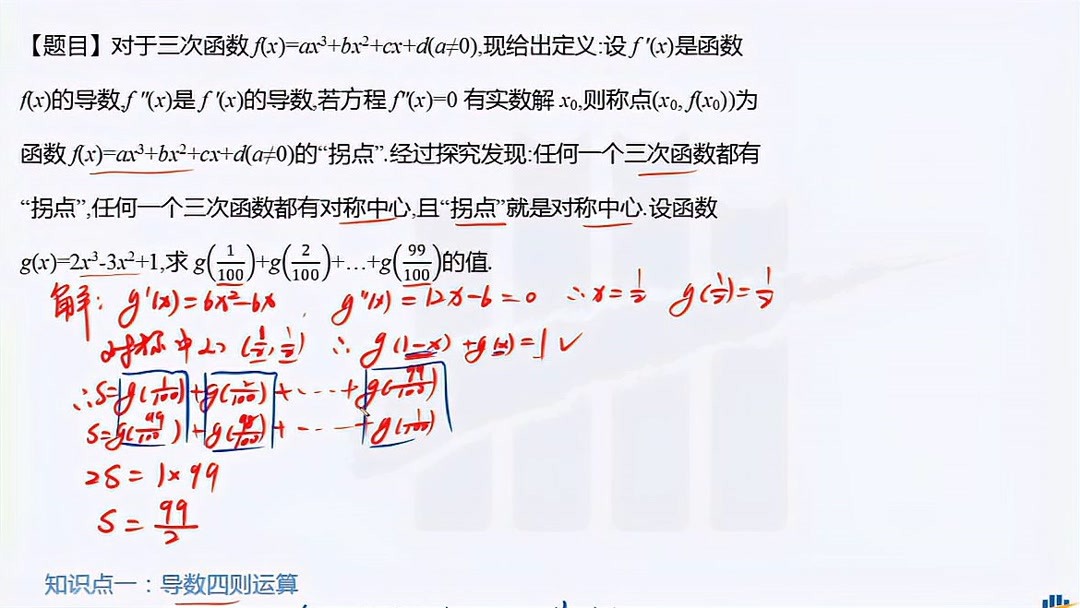 【题目】对于三次函数f(x)=ax³+bx²+cx+d(a≠0),现给出定义:设f′(x)是函数
f(x)的导数,f″(x)是f′(x)的导数,若方程f″(x)=0有实数解x₀,则称点(x₀, f(x₀))为
函数f(x)=ax³+bx²+cx+d(a≠0)的“拐点”.经过探究发现:任何一个三次函数都有
“拐点”,任何一个三次函数都有对称中心,且“拐点”就是对称中心.设函数
g(x)=2x³-3x²+1,求g(1/100)+g(2/100)+…+g(99/100)的值.
解: g′(x)=6x²-6x, g″(x)=12x-6=0 ∴x=1/2 g(1/2)=1/2
对称中心(1/2,1/2) ∴g(1-x)+g(x)=1✓
∴S=g(1/100)+g(2/100)+……+g(99/100)
S=g(99/100)+g(98/100)+……+g(1/100)
2S=1×99
S=99/2
知识点一：导数四则运算